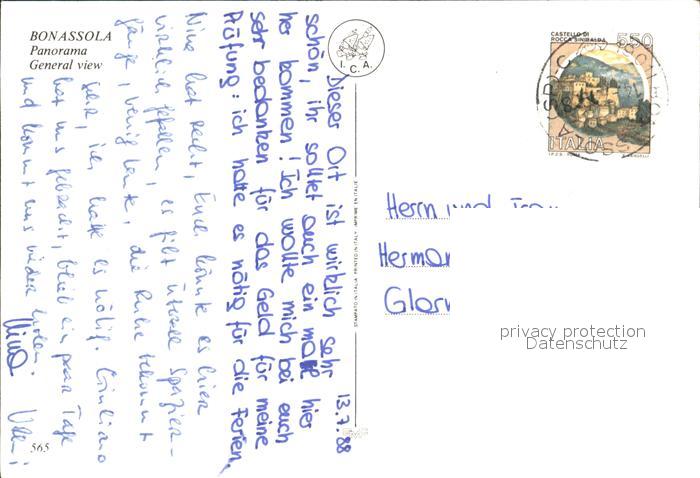 BONASSOLA
Panorama
General view
I.C.A.
CASTELLO DI
ROCCA SINIBALDA
550
ITALIA
I.P.Z.S. ROMA
13.7.88
Dieser Ort ist wirklich sehr
schön, ihr solltet auch ein mal hier
her kommen! Ich wollte mich bei euch
sehr bedanken für das Geld für meine
Prüfung: ich hatte es nötig für die Ferien.
Nina hat recht, Euch könnte es hier
wirklich gefallen, es gibt überall Spazier-
gänge, wenig Leute, die Ruhe bekommt
sehr, ich hatte es nötig. Giuliano
hat uns gebracht, blieb ein paar Tage
und kommt uns wieder holen.
Nina
STAMPATO IN ITALIA PRINTED IN ITALY IMPRIME EN ITALIE
Herrn und
565
privacy protection
Datenschutz